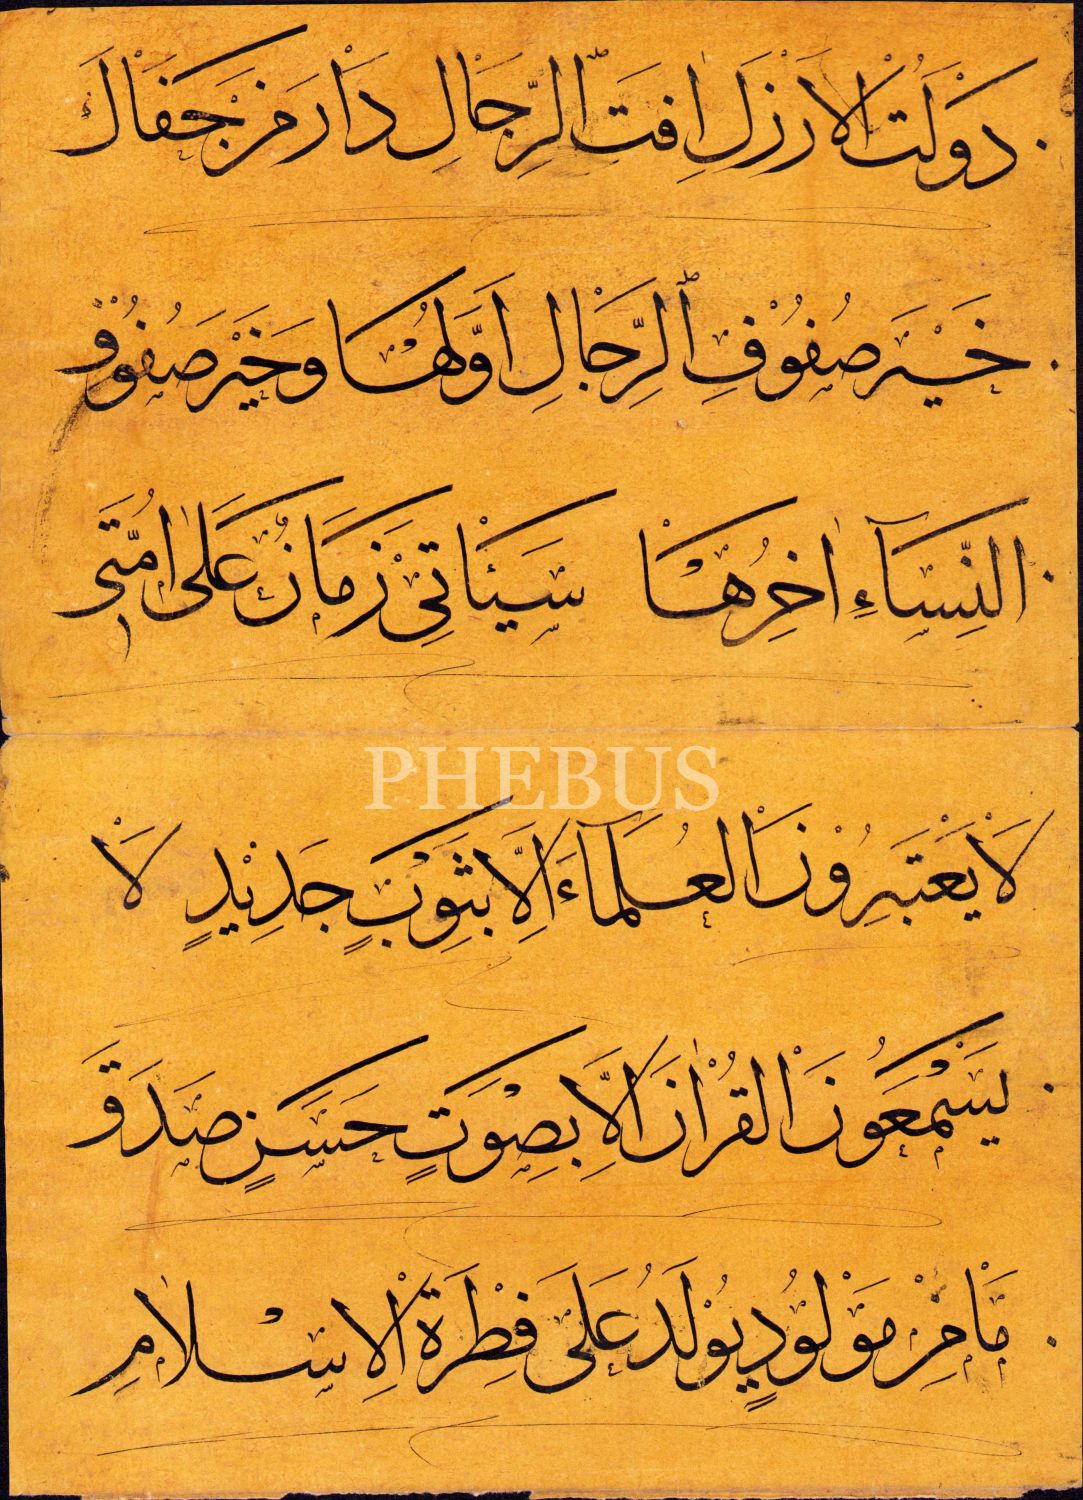 دَوْلَتْ الْاَرْذَلِ اٰفَتُ الرِّجَالِ دَارِ مَنْ جَفَاكَ
خَيْرُ صُفُوْفِ الرِّجَالِ اَوَّلُهَا وَخَيْرُ صُفُوْفِ
النِّسَآءِ اٰخِرُهَا سَيَاْتِىْ زَمَانٌ عَلٰى اُمَّتِى
لَا يَعْتَبِرُوْنَ الْعُلَمَآءَ اِلَّا بِثَوْبٍ جَدِيْدٍ لَا
PHEBUS
يَسْمَعُوْنَ الْقُرْاٰنَ اِلَّا بِصَوْتٍ حَسَنٍ صَدَقَ
مَا مِنْ مَوْلُوْدٍ يُوْلَدُ عَلَى فِطْرَةِ الْاِسْلَامِ